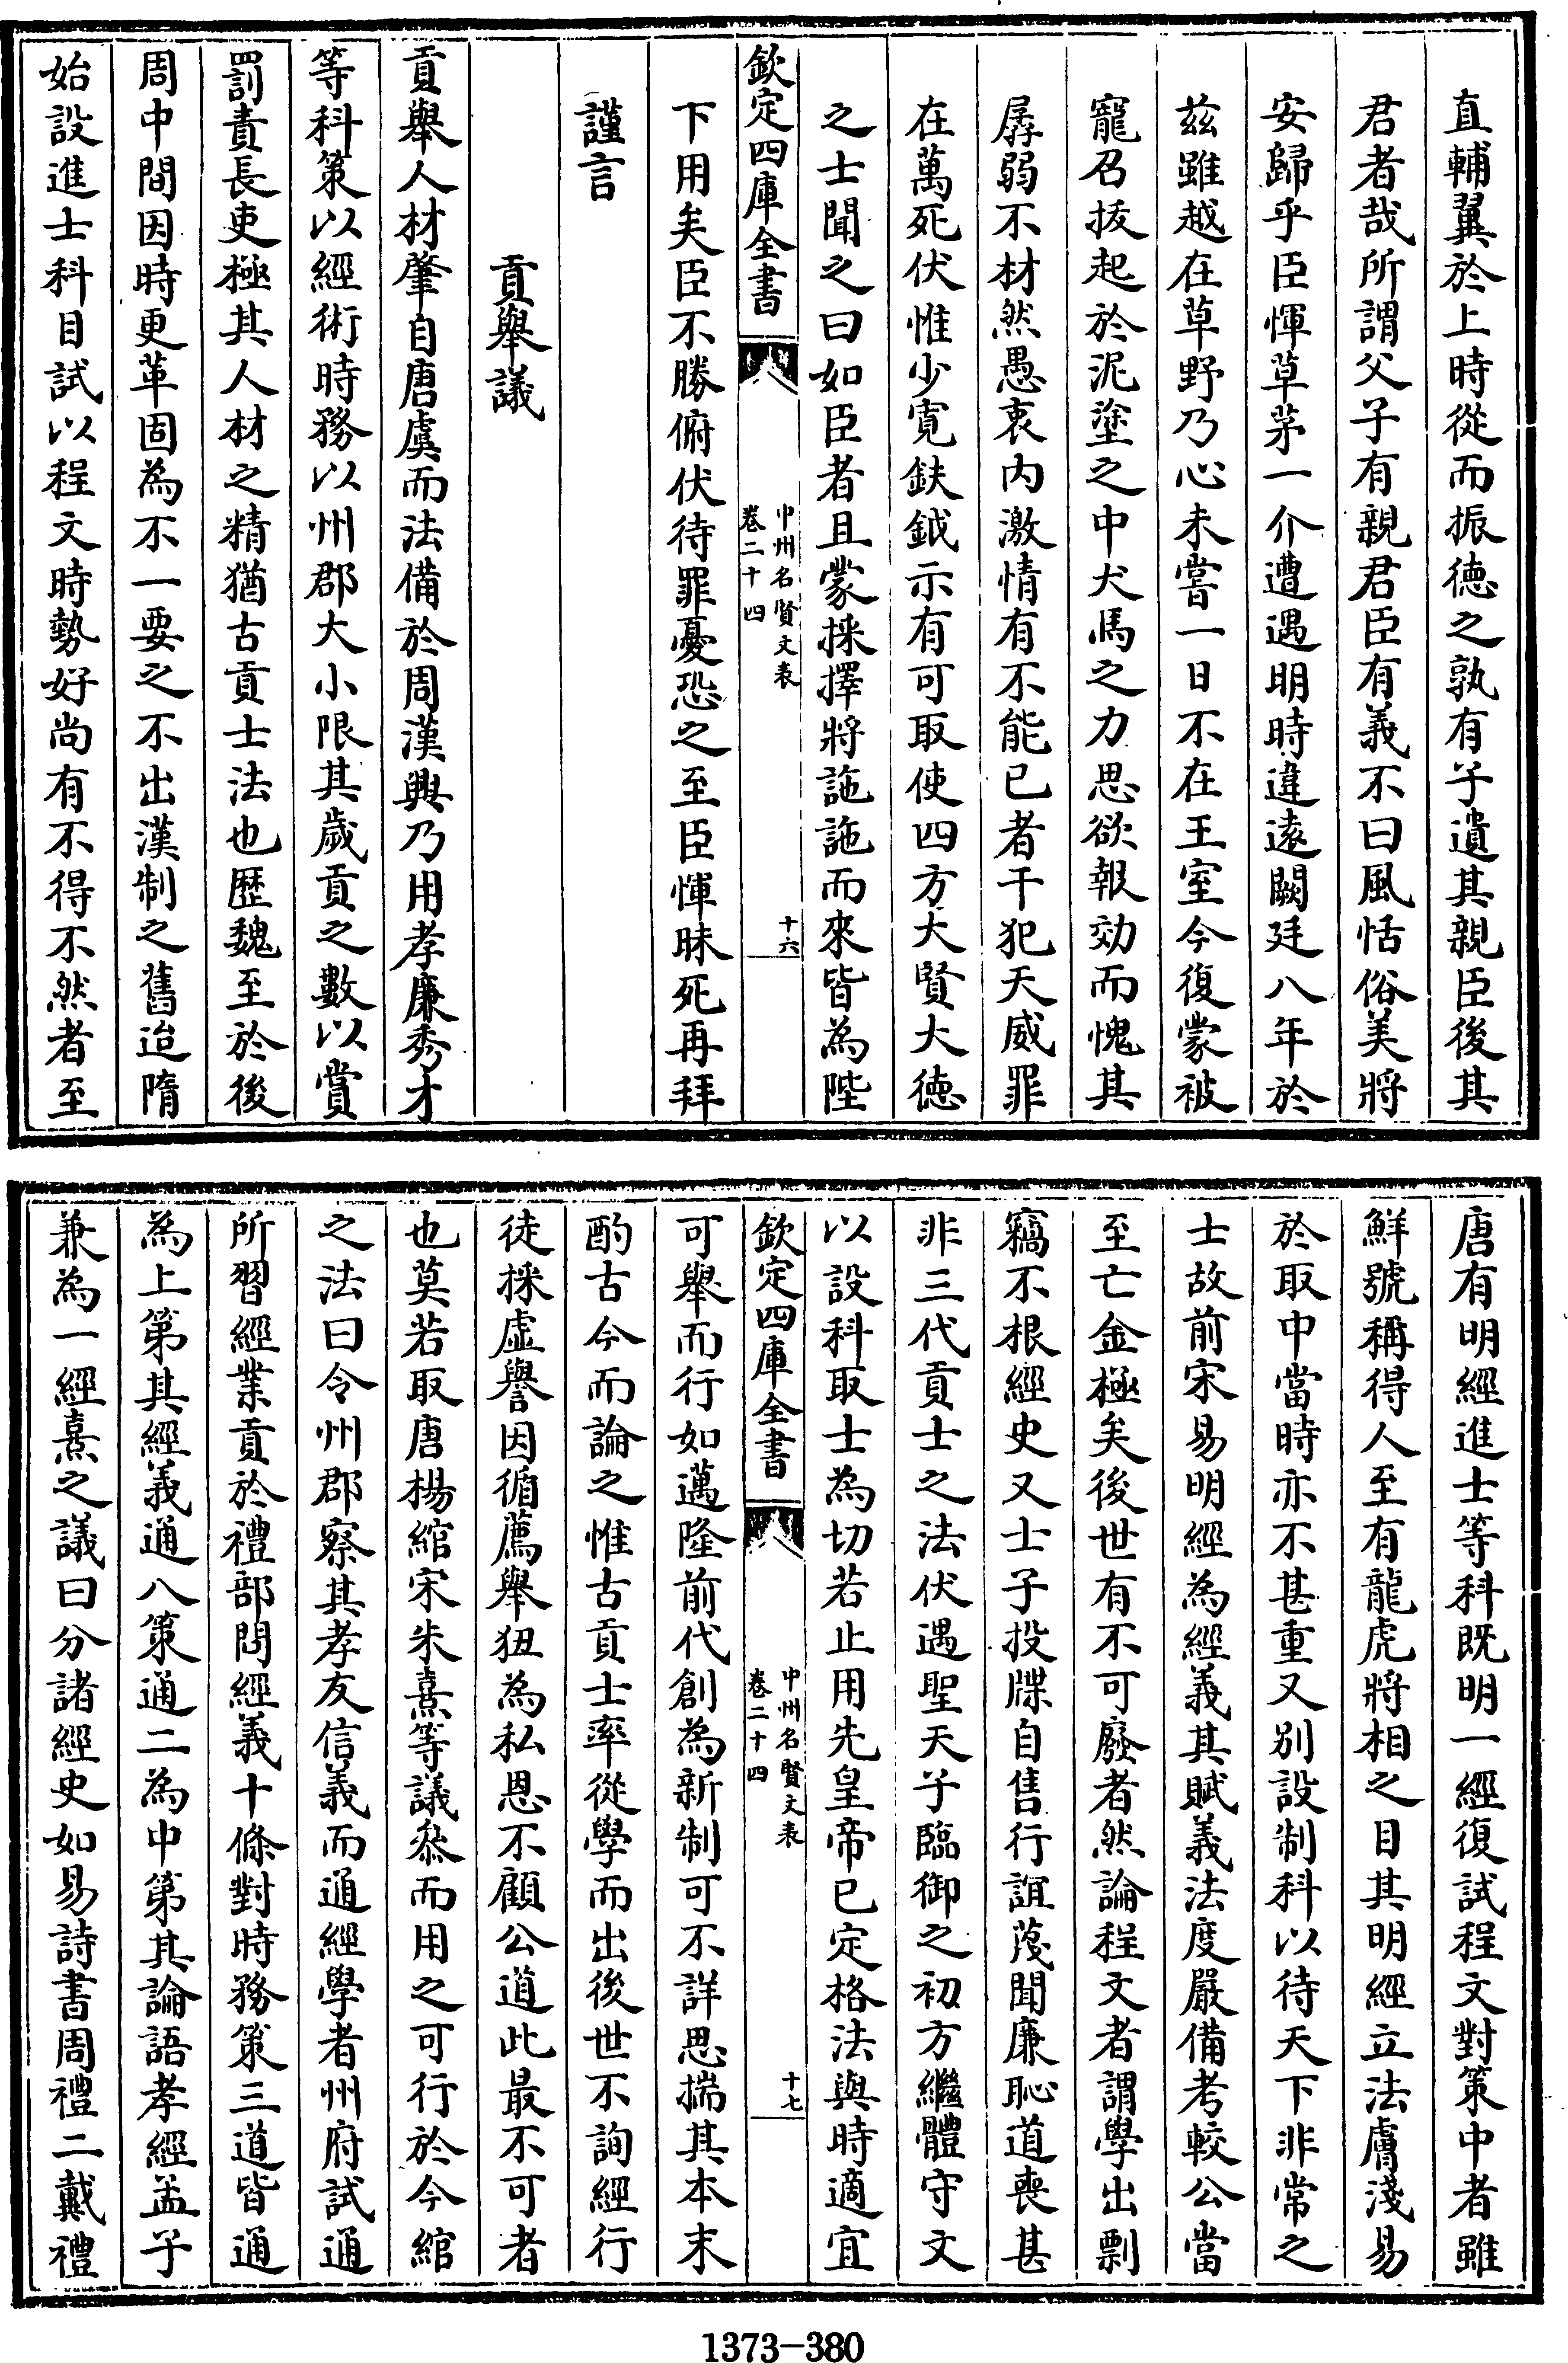 直輔翼於上時從而振德之孰有子遺其親臣後其
君者哉所謂父子有親君臣有義不曰風恬俗美將
安歸乎臣惲草茅一介遭遇明時違遠闕廷八年於
茲雖越在草野乃心未嘗一日不在王室今復蒙被
寵召拔起於泥塗之中犬馬之力思欲報効而愧其
孱弱不材然愚衷内激情有不能已者干犯天威罪
在萬死伏惟少寛鈇鉞示有可取使四方大賢大德
之士聞之曰如臣者且蒙採擇將訑訑而來皆為陛
欽定四庫全書
中州名賢文表
卷二十四
十六
下用矣臣不勝俯伏待罪憂恐之至臣惲昧死再拜
謹言
貢舉議
貢舉人材肇自唐虞而法備於周漢興乃用孝廉秀才
等科策以經術時務以州郡大小限其歲貢之數以賞
罰責長吏極其人材之精猶古貢士法也歴魏至於後
周中間因時更革固為不一要之不出漢制之舊迨隋
始設進士科目試以程文時勢好尚有不得不然者至
唐有明經進士等科既明一經復試程文對策中者雖
鮮號稱得人至有龍虎將相之目其明經立法膚淺易
於取中當時亦不甚重又别設制科以待天下非常之
士故前宋易明經為經義其賦義法度嚴備考較公當
至亡金極矣後世有不可廢者然論程文者謂學出剽
竊不根經史又士子投牒自售行誼蔑聞廉恥道喪甚
非三代貢士之法伏遇聖天子臨御之初方繼體守文
以設科取士為切若止用先皇帝已定格法與時適宜
欽定四庫全書
中州名賢文表
卷二十四
十七
可舉而行如邁隆前代創為新制可不詳思揣其本末
酌古今而論之惟古貢士率從學而出後世不詢經行
徒採虚譽因循薦舉狃為私恩不顧公道此最不可者
也莫若取唐楊綰宋朱熹等議叅而用之可行於今綰
之法曰令州郡察其孝友信義而通經學者州府試通
所習經業貢於禮部問經義十條對時務策三道皆通
為上第其經義通八策通二為中第其論語孝經孟子
兼為一經熹之議曰分諸經史如易詩書周禮二戴禮
1373-380